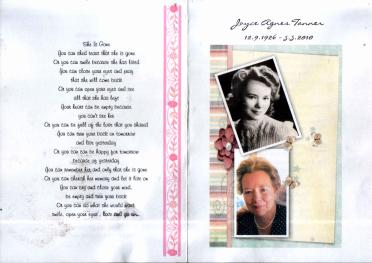 She Is Gone
You can shed tears that she is gone
Or you can smile because she has lived
You can close your eyes and pray
that she will come back
Or you can open your eyes and see
all that she has left
Your heart can be empty because
you can't see her
Or you can be full of the love that you shared
You can turn your back on tomorrow
and live yesterday
Or you can be happy for tomorrow
because of yesterday
You can remember her and only that she is gone
Or you can cherish her memory and let it live on
You can cry and close your mind,
be empty and turn your back
Or you can do what she would want
smile, open your eyes, love and go on.
Joyce Agnes Tanner
12.9.1926 - 5.5.2010